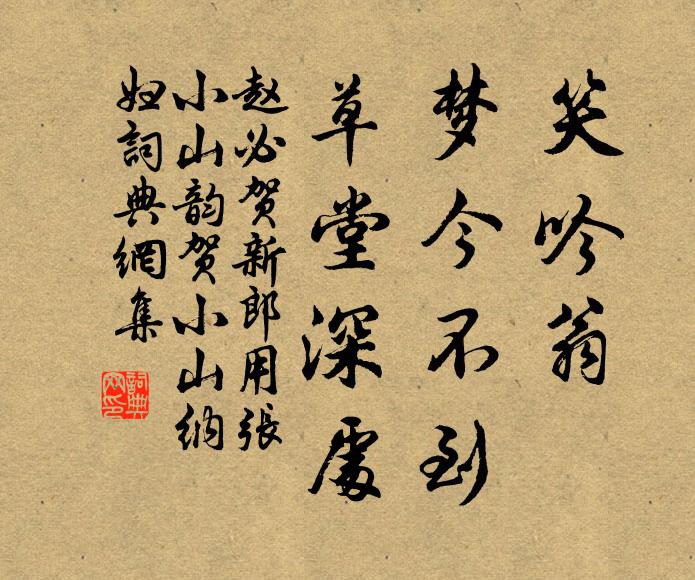 笑吟翁
梦今不到
草堂深處
赵必贺新郎用張
小山韵贺小山納
妇詞典網集
詞典
网印